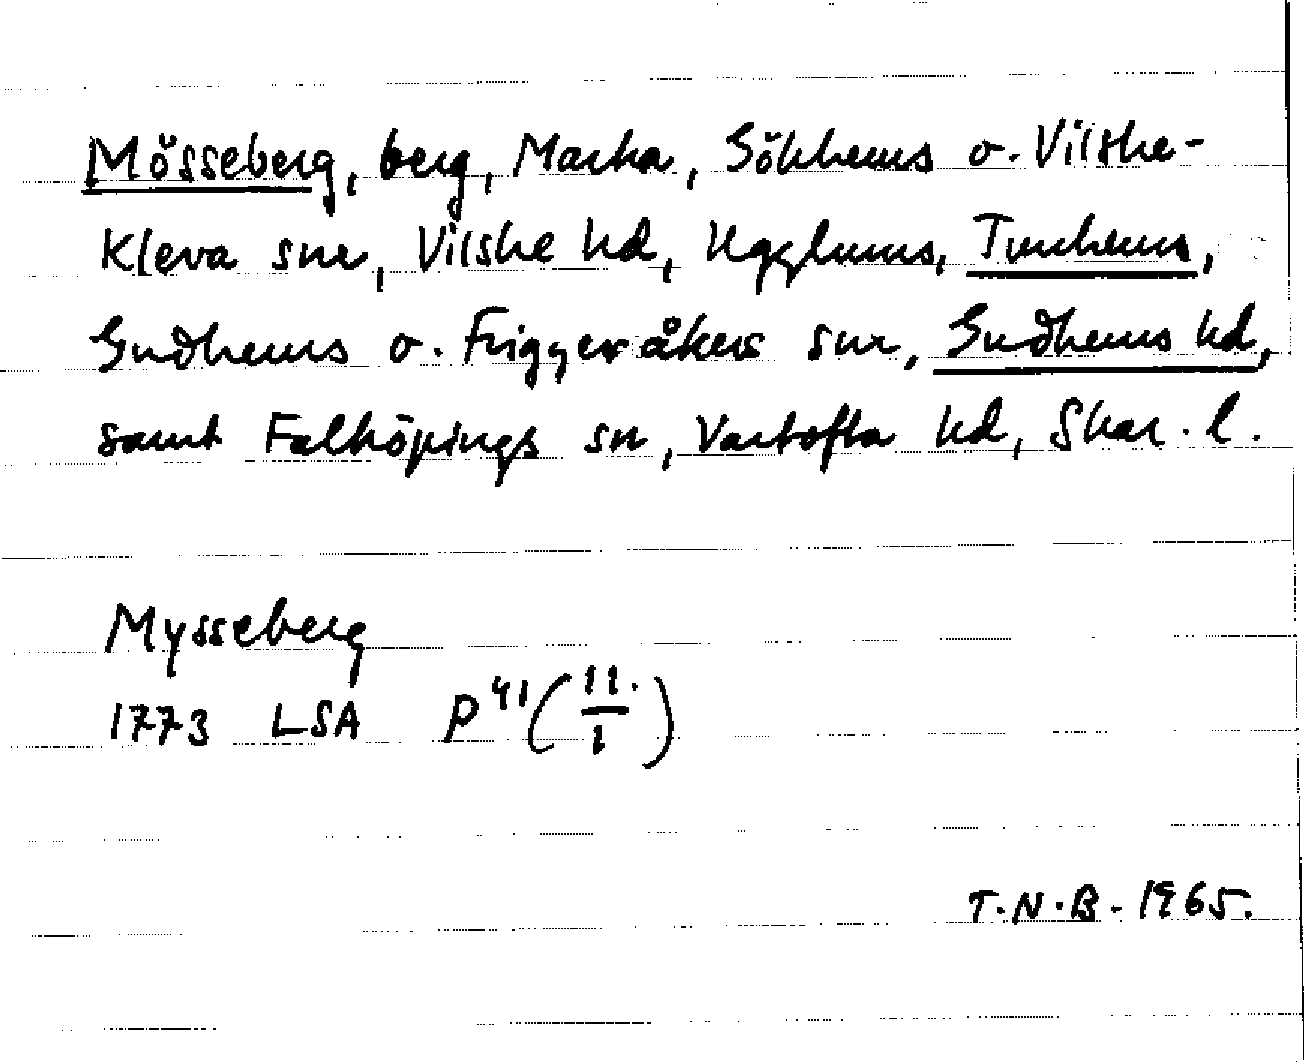 Mösseberg, berg, Marka, Sökhems o. Vilske-
Kleva snr, Vilske hd, Ugglums, Torbjörns,
Gudhems o. Friggeråkers snr, Gudhems hd,
samt Falköpings sn, Vartofta hd, Skar. l.
Mysseberg
1773 LSA P 41 (11./1)
T.N.B. 1965.